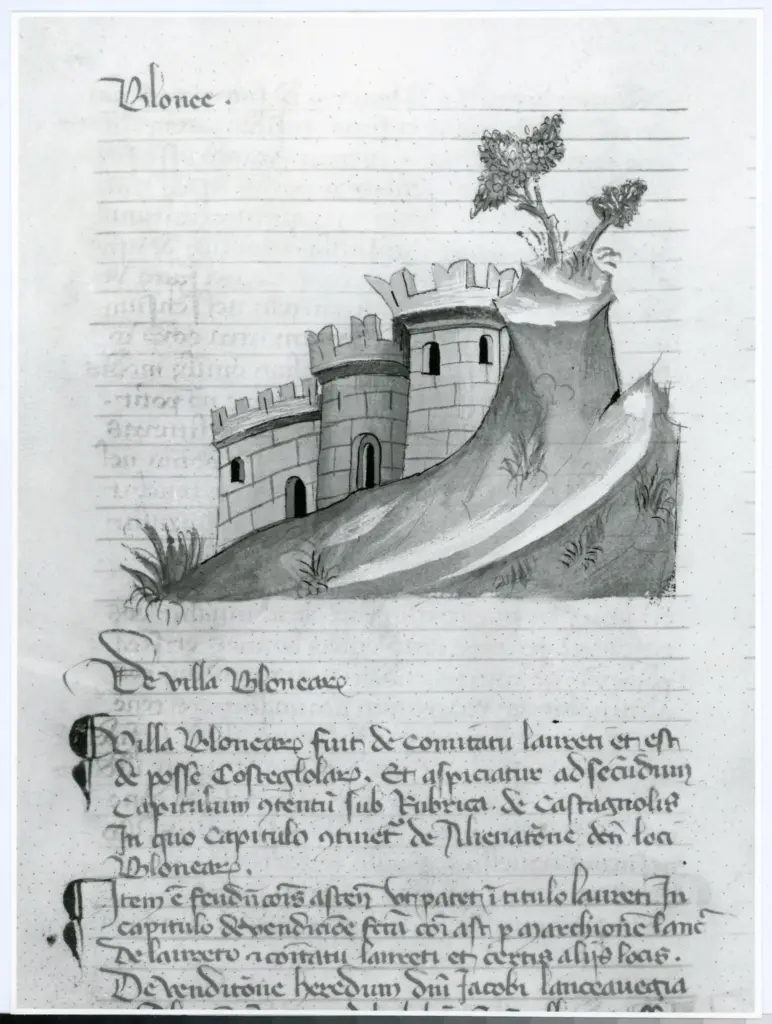 Blonee.
De villa Blonearꝝ
Villa Blonearꝝ fuit de Comitatu laureti et est
de posse Costeglolarꝝ. Et aspiciatur ad secūdum
Capitulum ꝯtentū sub Rubrica de Castagnolis
In quo Capitulo ꝯtinet de Alienatōne dcti loci
Blonearꝝ.
Item ē feudū cōis asten̄ vt patet ī titulo laureti In
capitulo de vendicōne fctā coi ast p marchionē lanc̄
De laureto ⁊ comitatu laureti et certis alijs locis.
De venditōne heredum dnī Jacobi lanceauegia